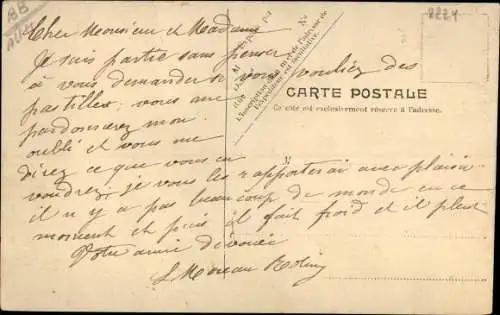 Cher Monsieur et Madame
Je suis partie sans penser
à vous demander si vous vouliez des
pastilles, vous me
pardonnerez mon
oublié et vous me
direz ce que vous en
voudrez, je vous les rapporterai avec plaisir
il n'y a pas beaucoup de monde en ce
moment et puis il fait froid et il pleut
Votre amie dévouée
L Moreau
CARTE POSTALE
Ce côté est exclusivement réservé à l'adresse.
l'Expéditeur est facultative.
BB